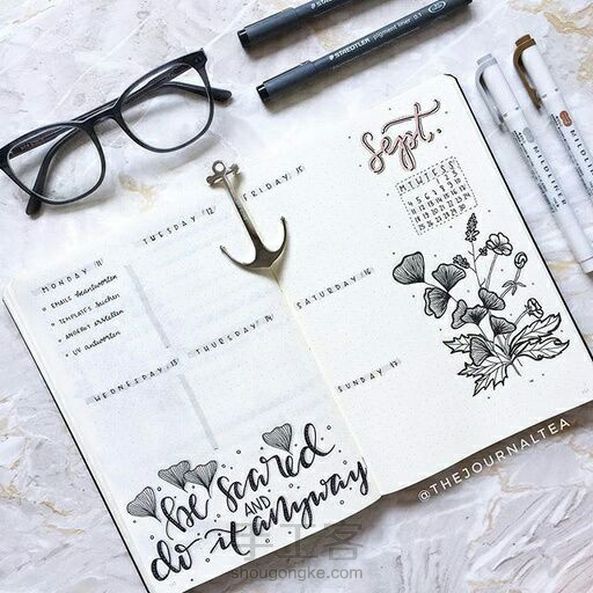 STAEDTLER
STAEDTLER pigment liner 0.1
MILDLINER
MILDLINER
Sept.
M T W T F S S
1 2 3
4 5 6 7 8 9 10
11 12 13 14 15 16 17
18 19 20 21 22 23 24
25 26 27 28 29 30
MONDAY 11
EMAILS beantworten
TEMPLATES suchen
ANGEBOT erstellen
UV antworten
TUESDAY 12
WEDNESDAY 13
THURSDAY 14
FRIDAY 15
SATURDAY 16
SUNDAY 17
be scared
AND
do it anyway
@THEJOURNALTEA
手工客
shougongke.com